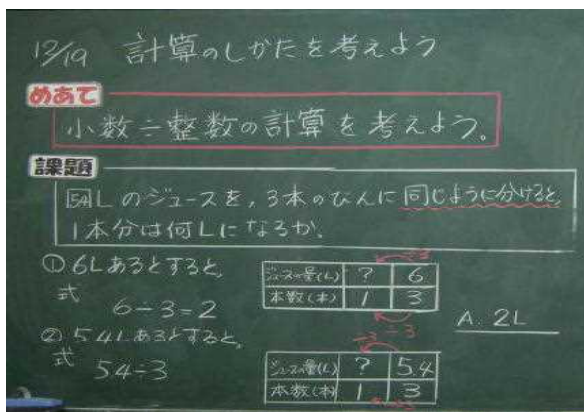 12/19 計算のしかたを考えよう
めあて
小数÷整数の計算を考えよう。
課題
5.4Lのジュースを、3本のびんに同じように分けると、
1本分は何Lになるか。
① 6Lあるとすると、
式
6÷3=2
÷3
ジュースの量(L) ? 6
本数(本) 1 3
÷3
A. 2L
② 5.4Lあるとすると、
式 5.4÷3
÷3
ジュースの量(L) ? 5.4
本数(本) 1 3
÷3